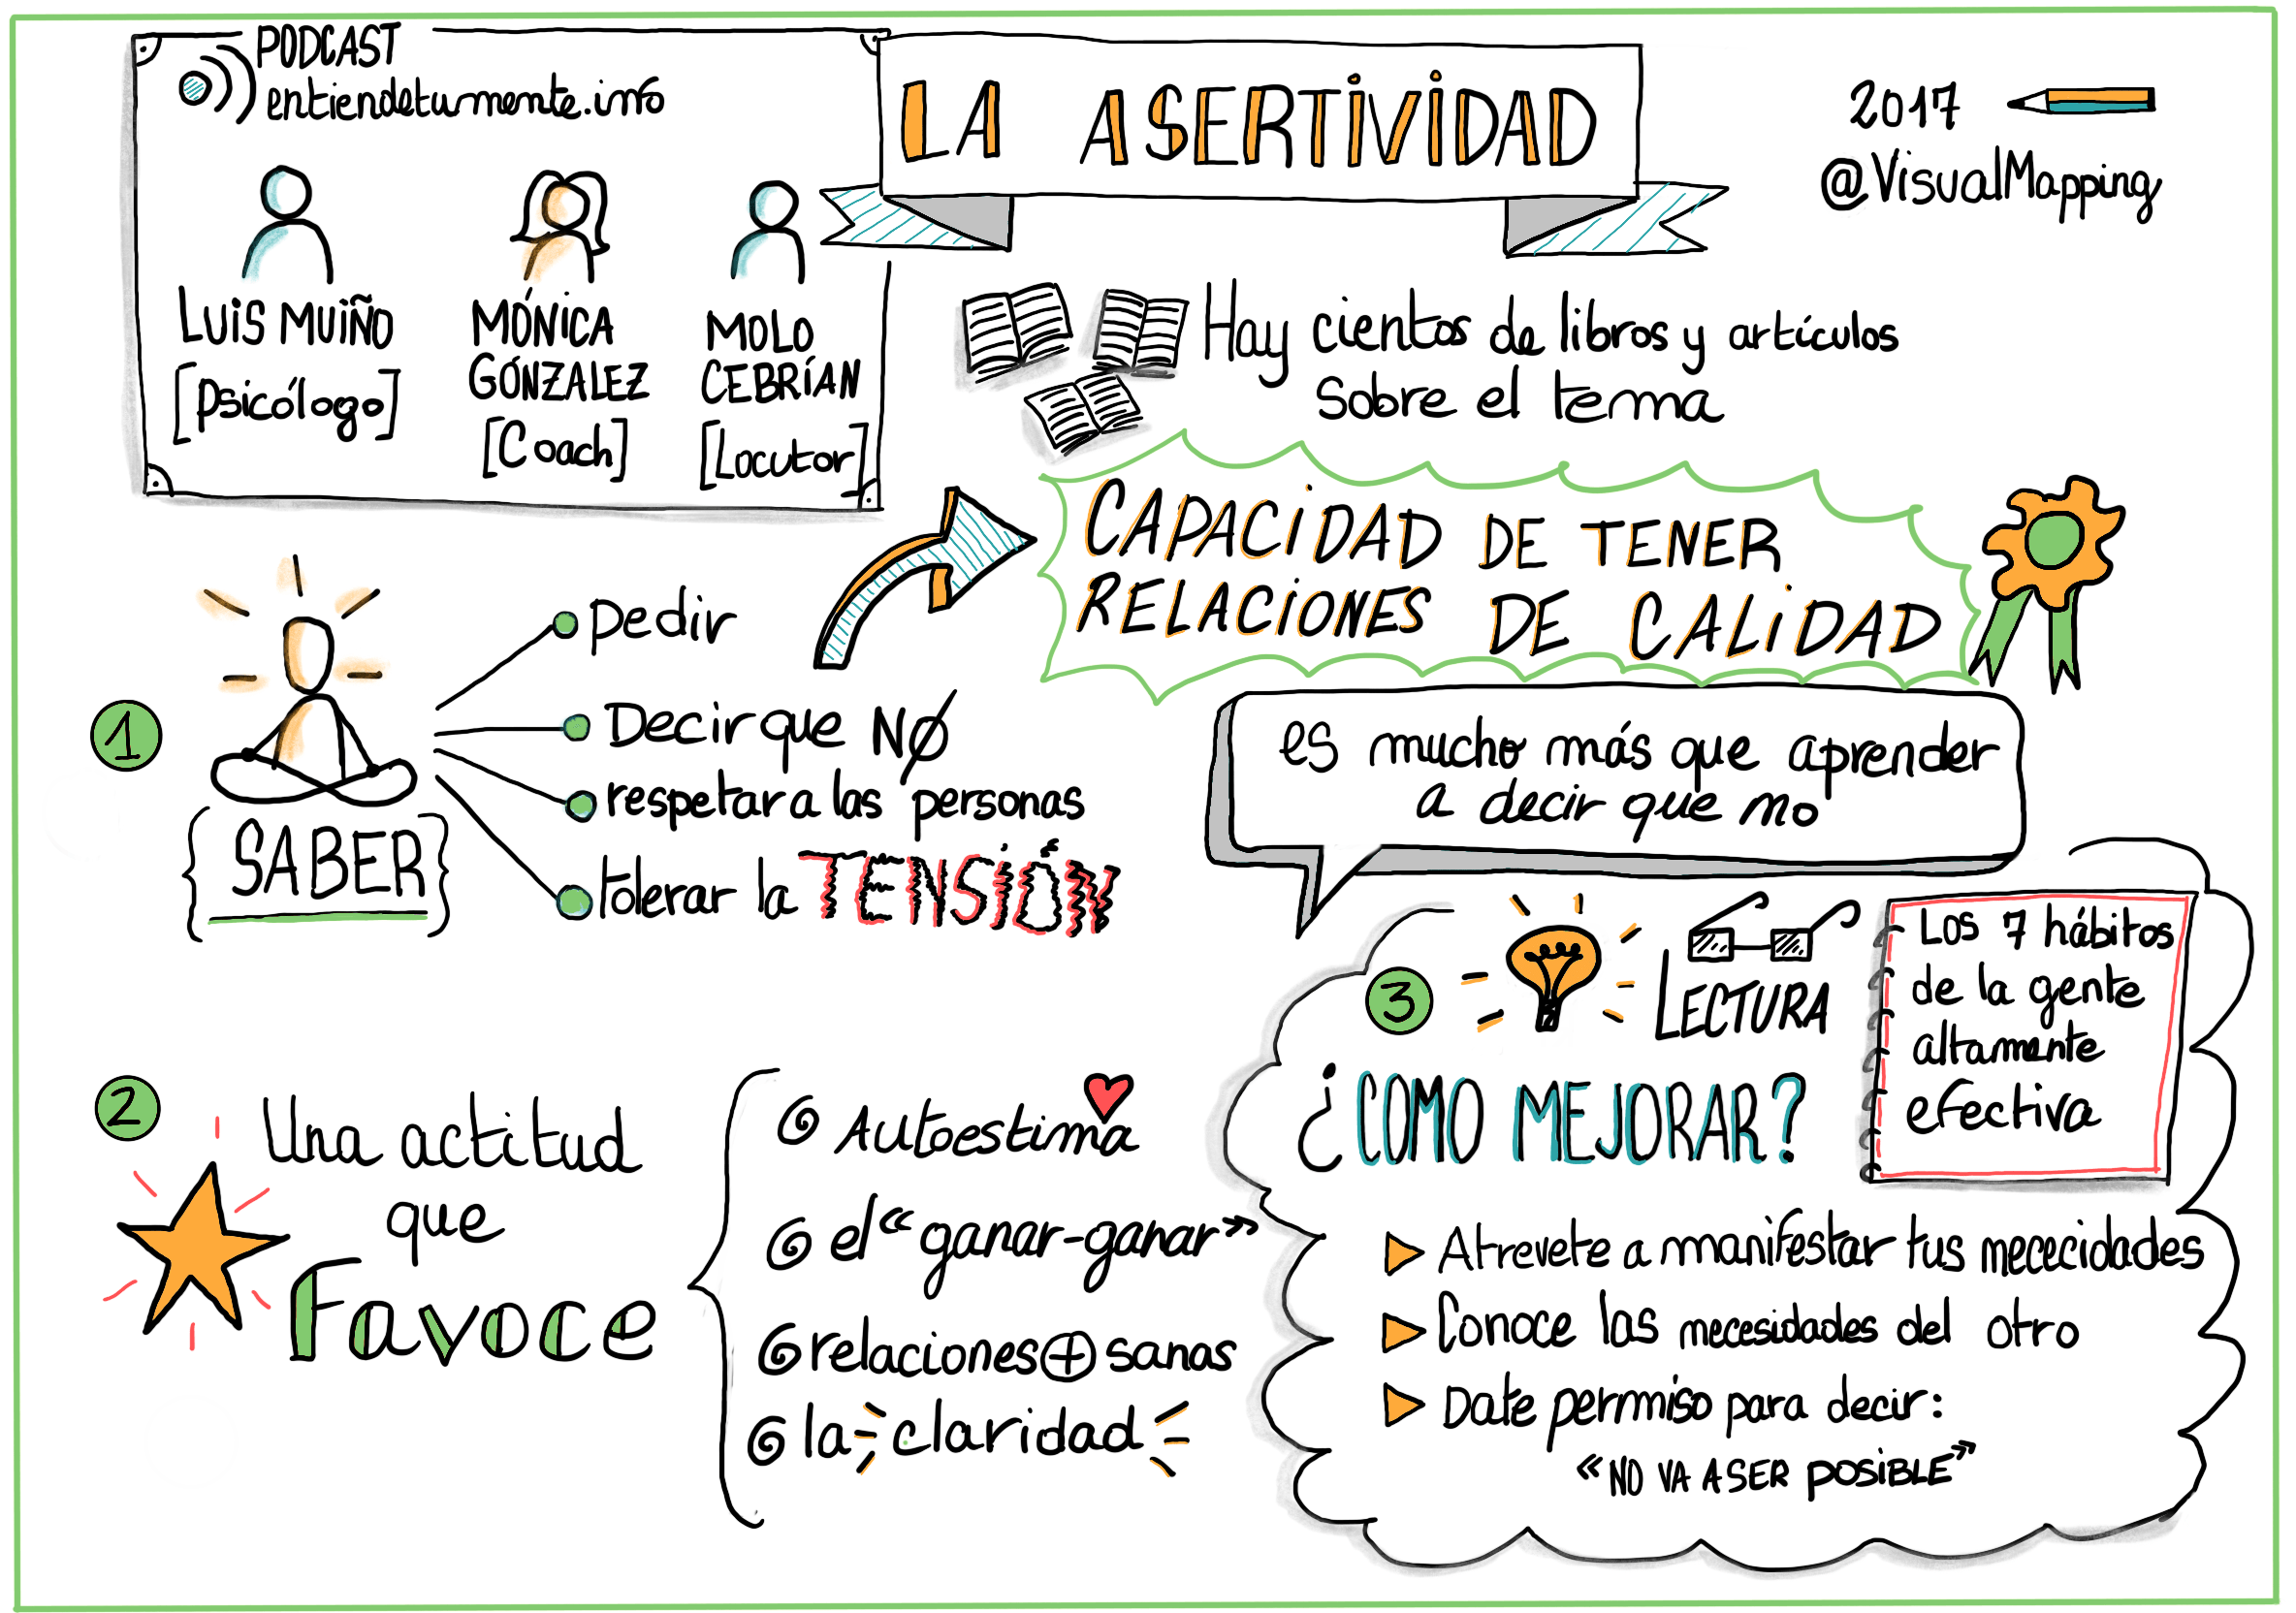 PODCAST
entiendetumente.info
LUIS MUIÑO
[Psicólogo]
MÓNICA
GÓNZALEZ
[Coach]
MOLO
CEBRÍAN
[Locutor]
LA ASERTIVIDAD
2017
@VisualMapping
Hay cientos de libros y artículos
sobre el tema
CAPACIDAD DE TENER
RELACIONES DE CALIDAD
es mucho más que aprender
a decir que no
1
{SABER}
Pedir
Decir que NO
respetar a las personas
tolerar la TENSIÓN
2
Una actitud
que
Favoce
Autoestima
el "ganar-ganar"
relaciones + sanas
la claridad
3
LECTURA
Los 7 hábitos
de la gente
altamente
efectiva
¿COMO MEJORAR?
Atrevete a manifestar tus nececidades
Conoce las necesidades del otro
Date permiso para decir:
"NO VA A SER POSIBLE"